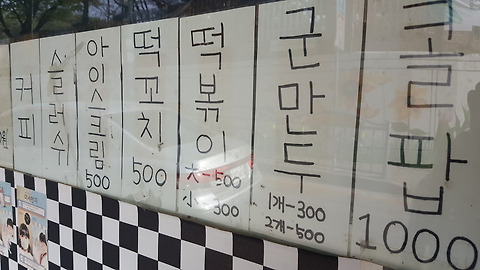 커피
슬러쉬
아이스크림
500
떡꼬치
500
떡볶이
大-500
小-300
군만두
1개-300
2개-500
1000